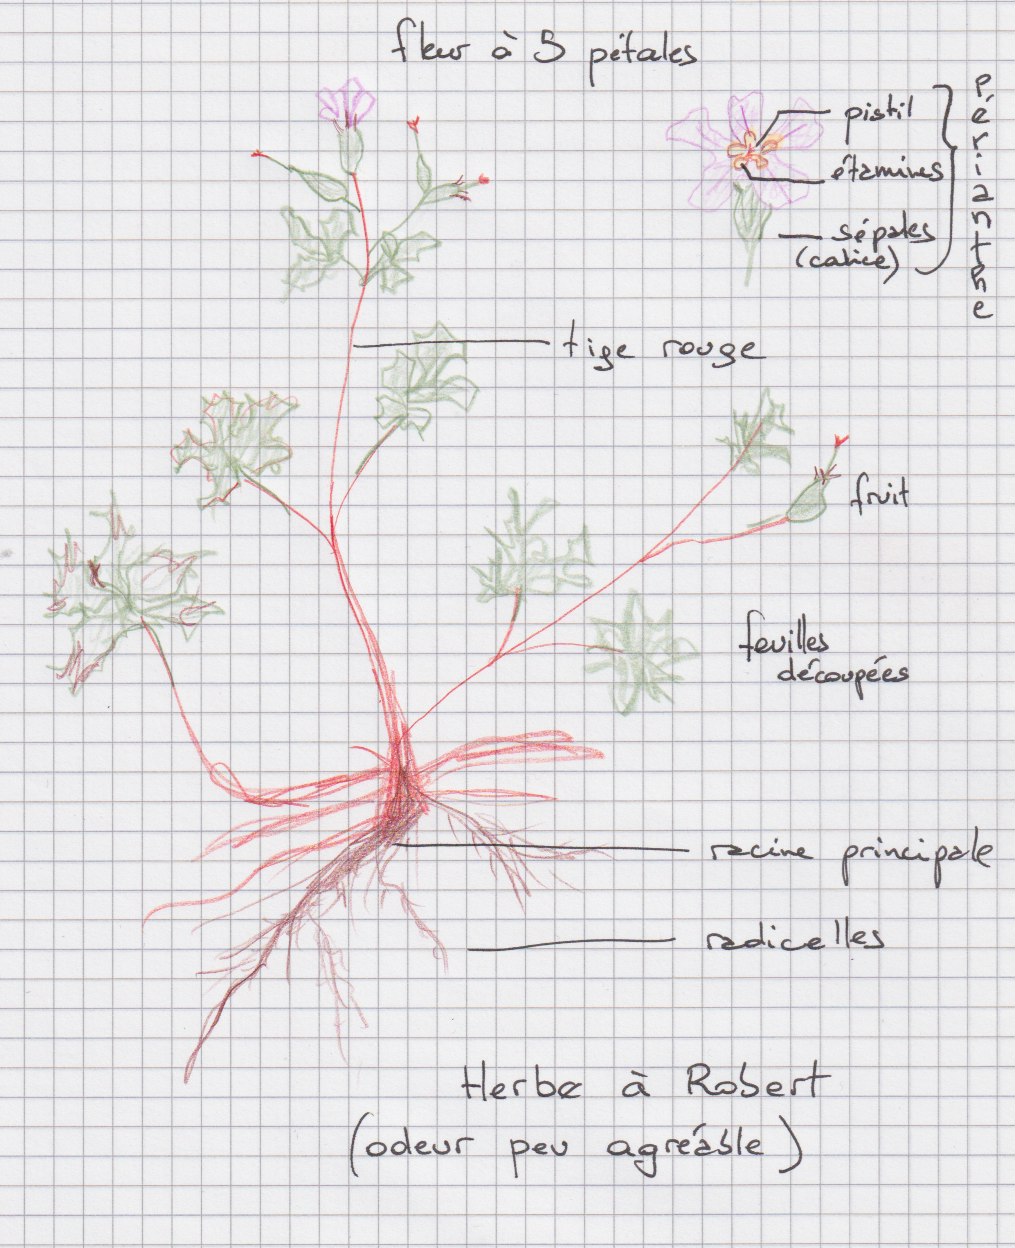 fleur à 5 pétales
pistil
étamines
sépales
(calice)
périanthe
tige rouge
fruit
feuilles
découpées
racine principale
radicelles
Herbe à Robert
(odeur peu agréable)